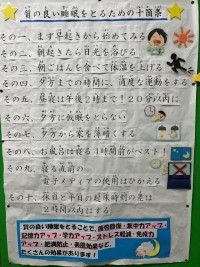 質の良い睡眠をとるための十箇条
その一、まず早起きから始めてみる
その二、朝起きたら日光を浴びる
その三、朝ごはんを食べて体温を上げる
その四、夕方までの時間に、適度な運動をする
その五、昼寝は午後2時まで！20分以内に
その六、夕方に仮眠をとらない
その七、夕方から家を薄暗くする
その八、お風呂は寝る1時間前がベスト！
その九、寝る直前の
電子メディアの使用はひかえる
その十、休日と平日の起床時刻の差は
2時間以内にする
質の良い睡眠をとることで、疲労回復・集中力アップ・
記憶力アップ・学力アップ・ストレス軽減・免疫力
アップ・肥満防止・美肌効果など、
たくさんの効果があります！